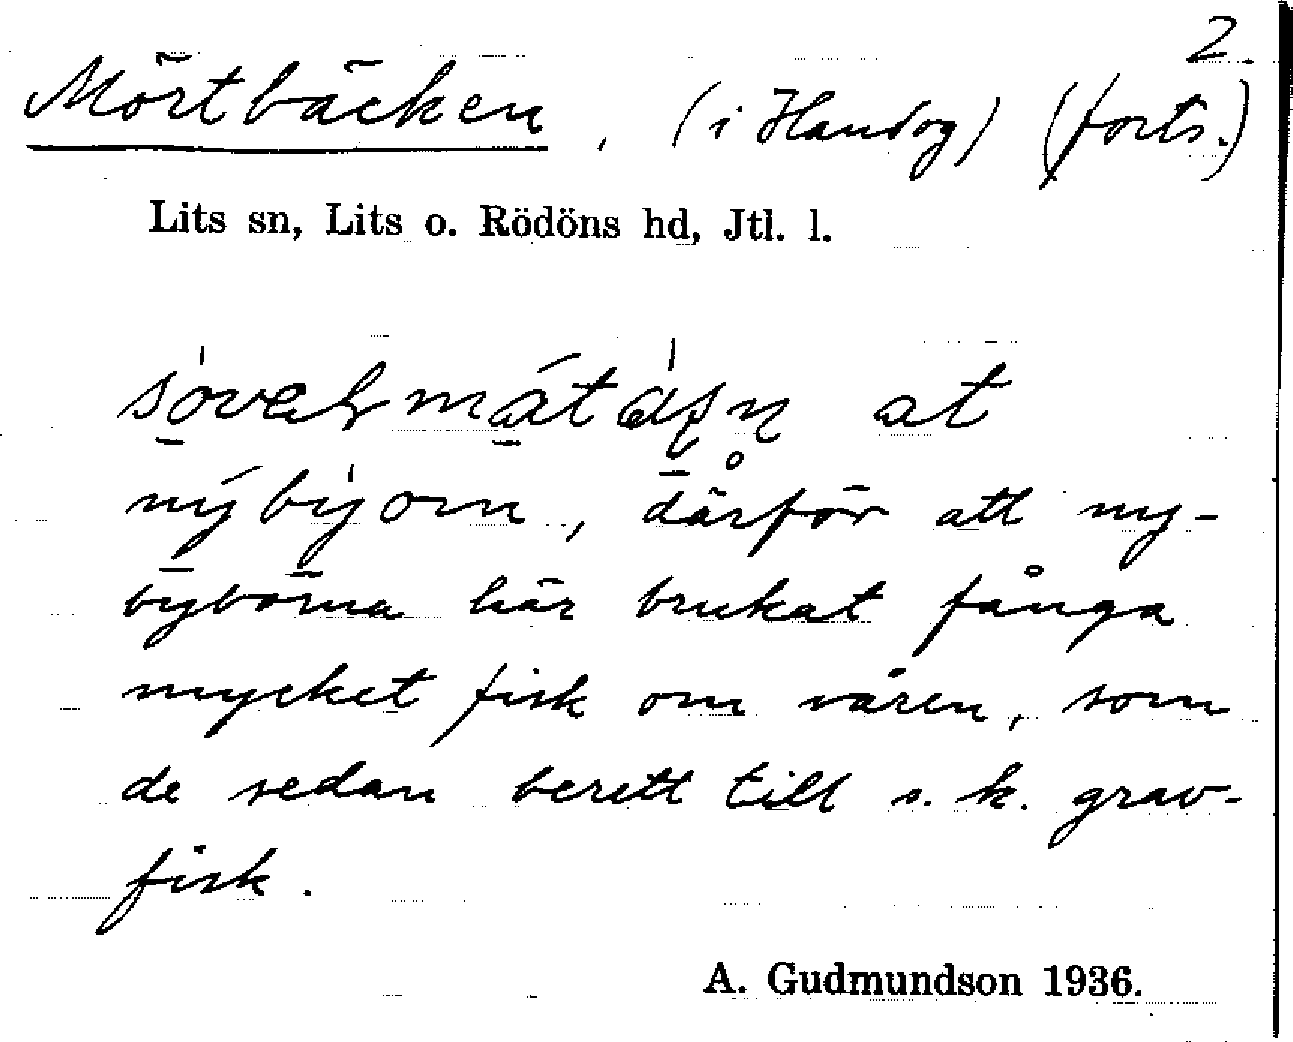 2.
Mörtbäcken, (i Handog) (forts.)
Lits sn, Lits o. Rödöns hd, Jtl. l.
at
nýbýom, därför att ny-
byborna här brukat fånga
mycket fisk om våren, som
de sedan berett till s. k. grav-
fisk.
A. Gudmundson 1936.